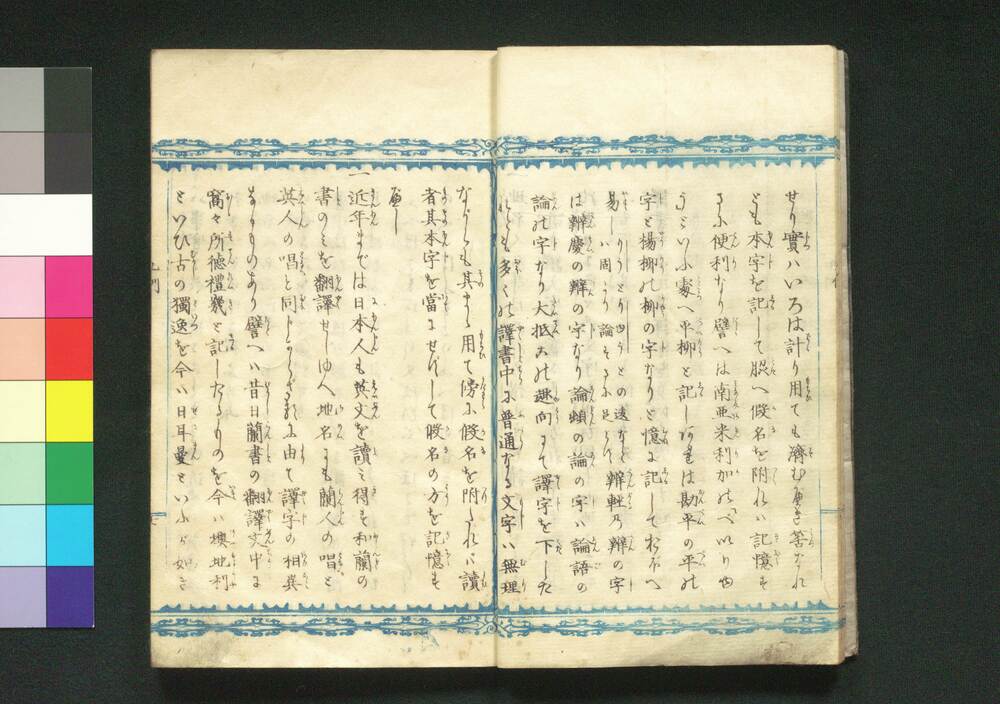 せり實ハいろは計り用ても濟む可き筈なれ
ども本字を記して脇へ假名を附れハ記憶す
るに便利なり譬へは南亜米利加の「ペいりゆ
う」といふ處へ平柳と記しあれは勘平の平の
字と楊柳の柳の字なりと憶に記しておぼへ
易しハ周り論そるに足らず辨軽乃辨の字
は辨慶の辨の字なり論頓の論の字ハ論語の
論の字なり大抵この趣向にて譯字を下した
れども多くの譯書中に普通なる文字ハ無理
ながらも其まゝ用て傍に假名を附たれハ讀
者其本字を當にせずして假名の方を記憶す
可し
一近年までは日本人も英文を讀む得す和蘭の
書のミを翻譯せしゆへ地名にも蘭人の唱と
英人の唱と同しからざるに由て譯字の相異
なるものあり譬へハ昔日蘭書の翻譯文中に
窩々所德禮幾と記したるものを今ハ墺地利
といひ古の獨逸を今ハ日耳曼といふが如き